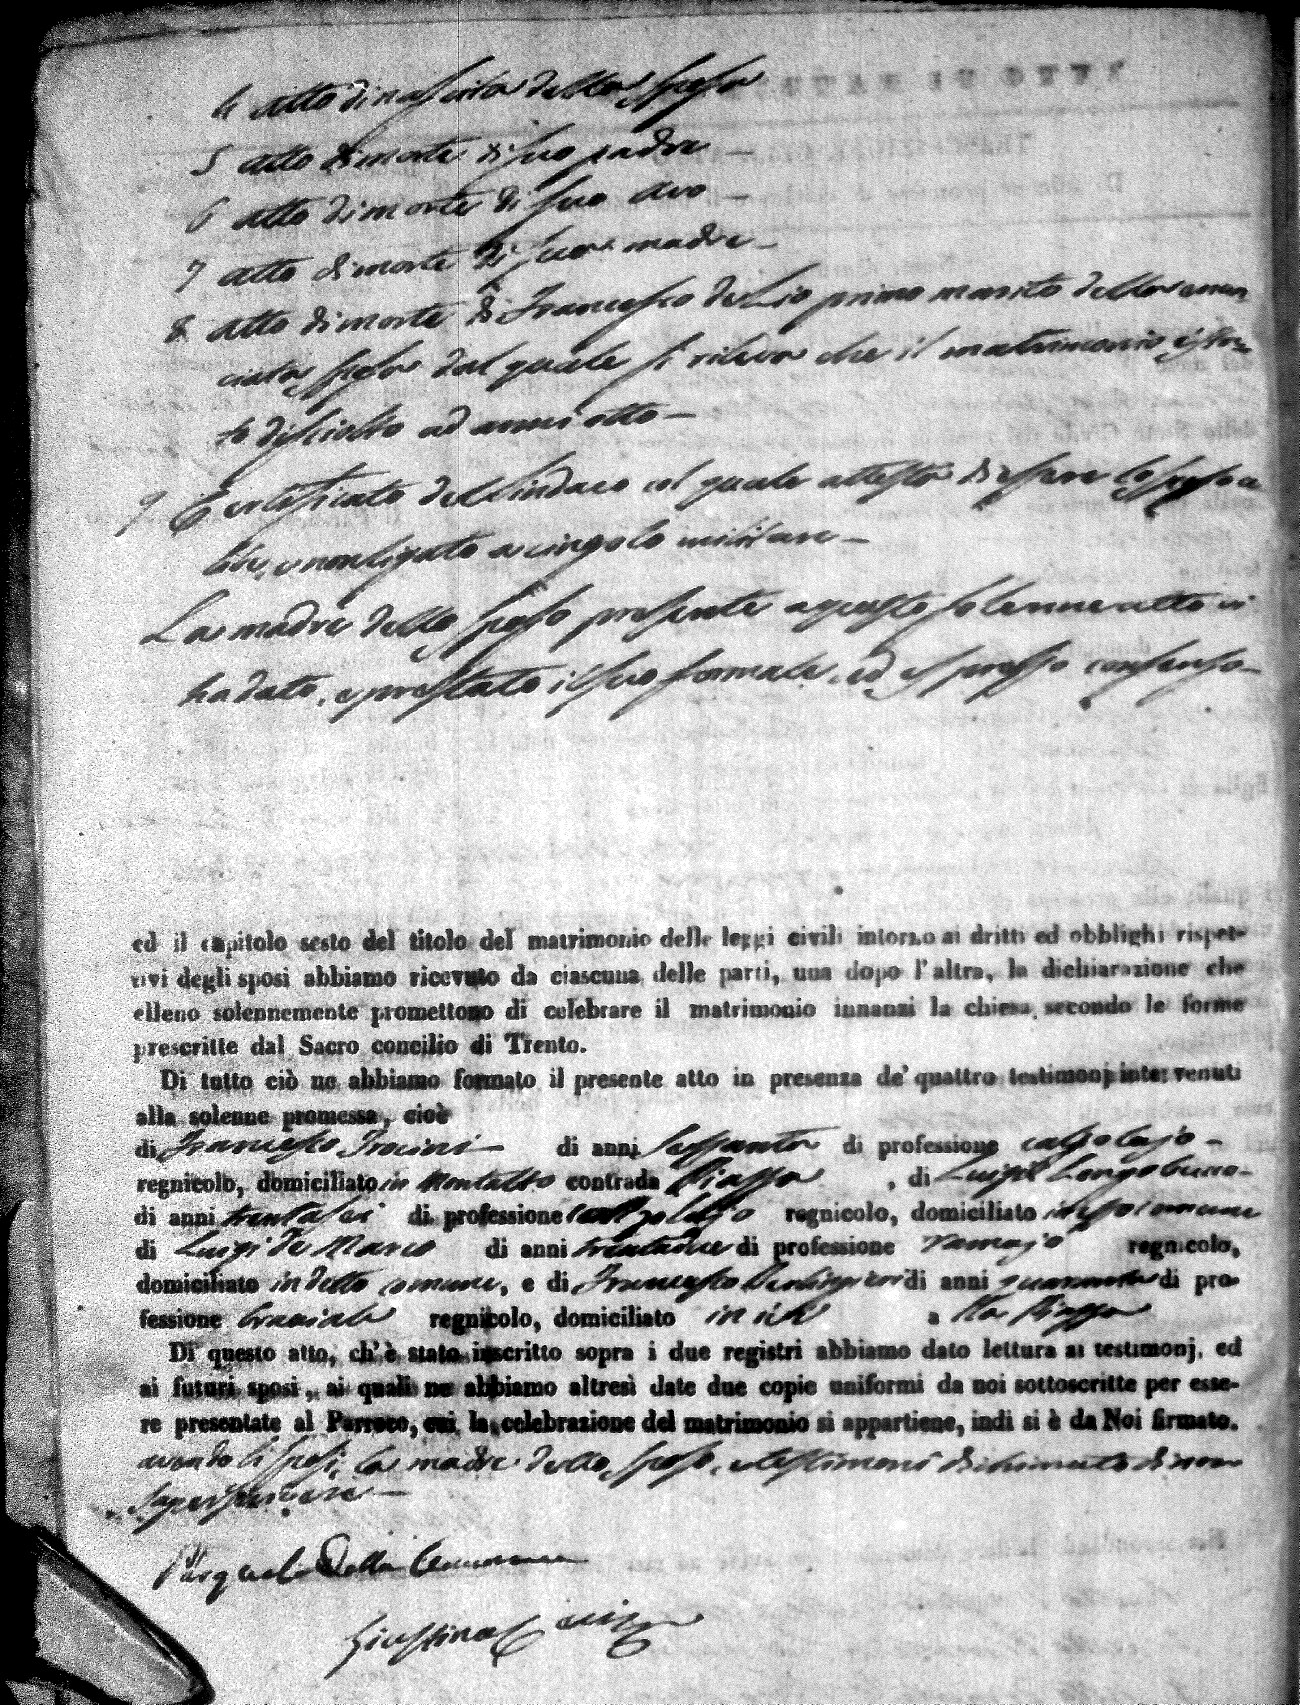 4 Atto di nascita della sposa
5 Atto di morte di suo padre —
6 Atto di morte di suo avo —
7 Atto di morte di sua madre —
8 Atto di morte di Francesco de Lio primo marito della enun
ciata sposa dal quale si rileva che il matrimonio è sta
to disciolto ad anni otto —
9 Certificato del Sindaco col quale attesta di essere lo sposo ce
libe, e non ligato a cingolo militare —
La madre dello sposo presente a questo solenne atto vi
ha dato, e prestato il suo formale, ed espresso consenso —
ed il capitolo sesto del titolo del matrimonio delle leggi civili intorno ai dritti ed obblighi rispet-
tivi degli sposi abbiamo ricevuto da ciascuna delle parti, una dopo l'altra, la dichiarazione che
elleno solennemente promettono di celebrare il matrimonio innanzi la chiesa secondo le forme
prescritte dal Sacro concilio di Trento.
Di tutto ciò ne abbiamo formato il presente atto in presenza de' quattro testimonj intervenuti
alla solenne promessa, cioè
di Francesco di anni Sessanta di professione calzolajo —
regnicolo, domiciliato in Montalto contrada Piazza , di Luigi Longobuco —
di anni trentasei di professione calzolajo regnicolo, domiciliato in esso comune
di Luigi de Marco di anni di professione ramajo regnicolo,
domiciliato in detto comune, e di Francesco di anni quaranta di pro-
fessione bracciale regnicolo, domiciliato in via a la Piazza
Di questo atto, ch'è stato inscritto sopra i due registri abbiamo dato lettura ai testimonj, ed
ai futuri sposi, ai quali ne abbiamo altresì date due copie uniformi da noi sottoscritte per esse-
re presentate al Parroco, cui la celebrazione del matrimonio si appartiene, indi si è da Noi firmato.
avendo li sposi, la madre dello sposo, e testimoni dichiarato di non
saper scrivere —
Pasquale Della
Giustino